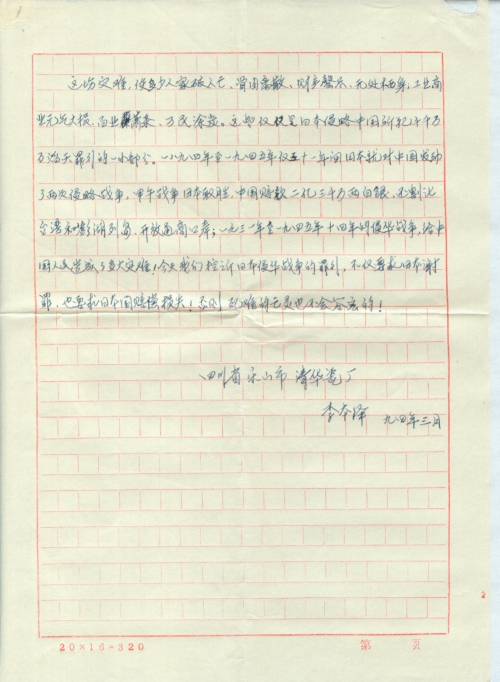 这场灾难，使多少人家破人亡、骨肉离散、财产磬尽、无处栖身；工业商
业元气大损、百业萧条、万民涂炭。这些仅仅是日本侵略中国所犯下千千万
万滔天罪行的一小部分。一八九四年至一九四五年仅五十一年间日本就对中国发动
了两次侵略战争，甲午战争日本取胜，中国赔款二亿三千万两白银，还割让
台湾和彭湖列岛，开放通商口岸；一九三一年至一九四五年十四年的侵华战争，给中
国人民造成了多大灾难！今天我们控诉日本侵华战争的罪行，不仅要求日本谢
罪，也要求日本国赔偿损失！否则死难的亡灵也不会答应的！
四川省乐山市 清华瓷厂
李本泽 九四年三月
20×16=320 第 页
2